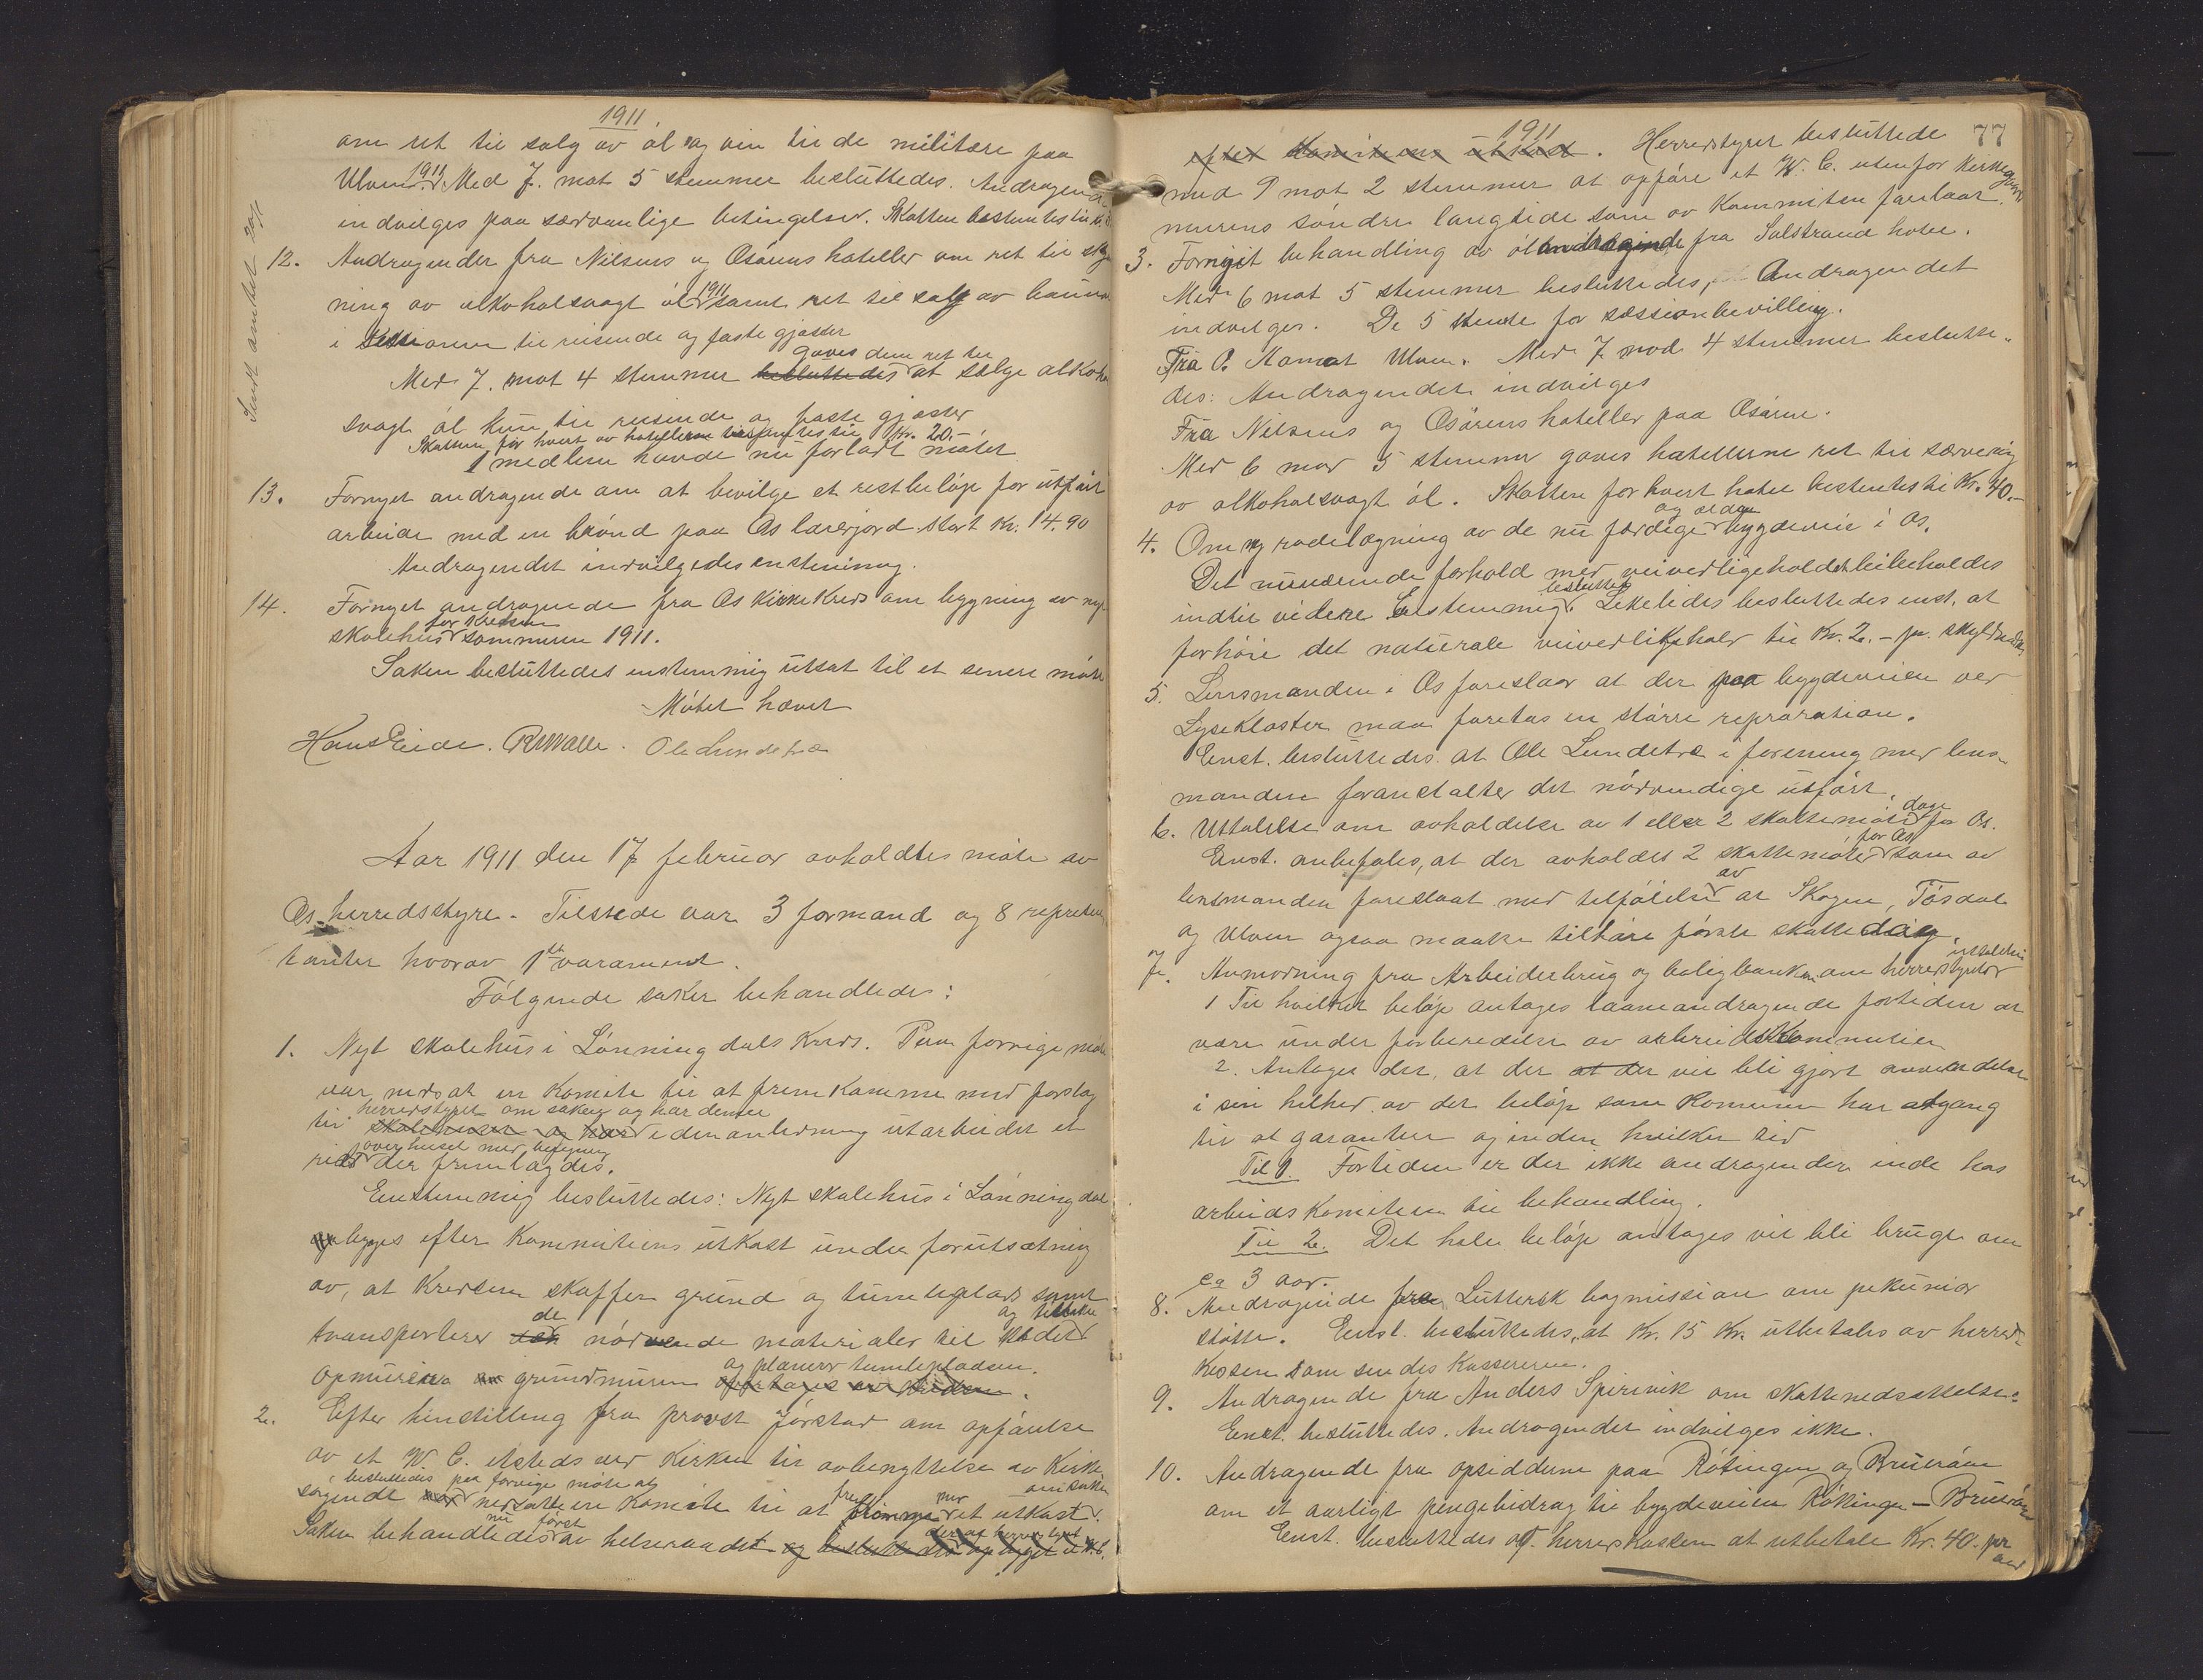 1911.
om ret til salg av øl og vin til de militære paa
Ulven 1911. Med 7. mot 5 stemmer besluttedes. Andragende
indvilges paa sædvanlige betingelser. Skatten bestemtes til
12. Andragender fra Nilsens og Osørens hoteller om ret til skjæn
ning av alkoholsvagt øl 1911 samt ret til salg av
i sessionen til reisende og faste gjæster
Med 7. mot 4 stemmer besluttedes gaves dem ret til at sælge alkohol
svagt øl kun til reisende og faste gjæster
Skatten for hvert av hotellerne bestemtes til Kr. 20.-
1 medlem havde nu forladt møtet
13. Fornyet andragende om at bevilge et restbeløp for utført
arbeide med en brønd paa Os lærerjord stort Kr. 14.90
Andragendet indvilgedes enstemmig.
14. Fornyet andragende fra Os Kirkekreds om bygning av nyt
skolehus for kredsen sommeren 1911.
Saken besluttedes enstemmig utsat til et senere møte
Møtet hævet
Hans Eide. R Walle. Ole Lundetræ
Sendt amtet
Aar 1911 den 17 februar avholdtes møte av
Os herredsstyre. Tilstede var 3 formænd og 8 represen
tanter hvorav 1 varamand.
Følgende saker behandledes:
1. Nyt skolehus i Lønningdals Kreds. Paa forrige møte
var nedsat en Komite til at fremkomme med forslag
til skolehuset og har herredsstyret om saken og har denne i den anledning utarbeidet et
rids over huset med bygning der fremlagdes.
Enstemmig besluttedes: Nyt skolehus i Lønningdal
bygges efter Kommiteens utkast under forutsætning
av, at Kredsen skaffer grund og tumleplads samt
transporterer de nødvende materialer til stedet og tillike
opmurer grundmuren og planerer tumlepladsen.
2. Efter henstilling fra provst Jørstad om opførelse
av et W. C. etsteds ved Kirken til avbenyttelse av Kirke
søgende besluttedes paa forrige møte at nedsætte en Komite til at fremkomme med et utkast om saken.
Saken behandledes nu først av helseraadet og besluttedes
77
1911
efter Komiteens utkast. Herredsstyret besluttede
med 9 mot 2 stemmer at opføre et W. C. utenfor Kirkegaard
murens søndre langside som av Kommiteen foreslaat.
3. Fornyet behandling av ølandragende fra Solstrand hotel.
Med 6 mot 5 stemmer besluttedes, Andragendet
indvilges. De 5 stemte for sessionbevilling.
Fra O. Hamar Ulven. Med 7 mod 4 stemmer beslutte-
des: Andragendet indvilges
Fra Nilsens og Osørens hoteller paa Osøren.
Med 6 mod 5 stemmer gaves hotellerne ret til servering
av alkoholsvagt øl. Skatten for hvert hotel bestemtes til Kr. 40.-
4. Om ny rodelægning av de nu færdige og ældre bygdeveie i Os.
Det nuværende forhold med veivedligeholdet beibeholdes
indtil videre besluttedes Enstemmig. Likeledes besluttedes enst. at
forhøie det naturale veivedlikehold til Kr. 2.- pr. skyldmark
5. Lensmanden i Os foreslaar at der paa bygdeveien ved
Lysekloster maa foretas en større repraration.
Enst. besluttedes at Ole Lundetræ i forening med lens-
manden foranstalter det nødvendige utført.
6. Uttalelse om avholdelse av 1 eller 2 skattemøtedage for Os.
Enst. anbefales, at der avholdes 2 skattemøter for Os som av
lensmanden foreslaat med tilføielse av at Skogen, Tøsdal
og Ulven ogsaa maatte tilhøre første skattedag
7. Anmodning fra Arbeiderbrug og boligbanken om herredsstyrets uttalelse
1 Til hvilket beløp antages laaneandragende fortiden at
være under forberedelse av arbeidskommiteen
2. Antages det, at der at der vil bli gjort anvendelse
i sin helhed av det beløp som Komunen har adgang
til at garantere og inden hvilken tid
Til 1 Fortiden er der ikke andragender inde hos
arbeidskomiteen til behandling.
Til 2. Det hele beløp antages vil bli brugt om
ca 3 aar.
8. Andragende fra Luthersk bogmission om pekuniær
støtte. Enst. besluttedes, at Kr. 15 Kr. utbetales av herreds-
kassen som sendes Kassereren.
9. Andragende fra Anders Spirivik om skattenedsættelse.
Enst. besluttedes. Andragendet indvilges ikke.
10. Andragende fra opsidderne paa Røtingen og Bruerøen
om et aarligt pengebidrag til bygdeveien Røtingen – Bruerøen
Enst. besluttedes af herredskassen at utbetale Kr. 40. pr
aar